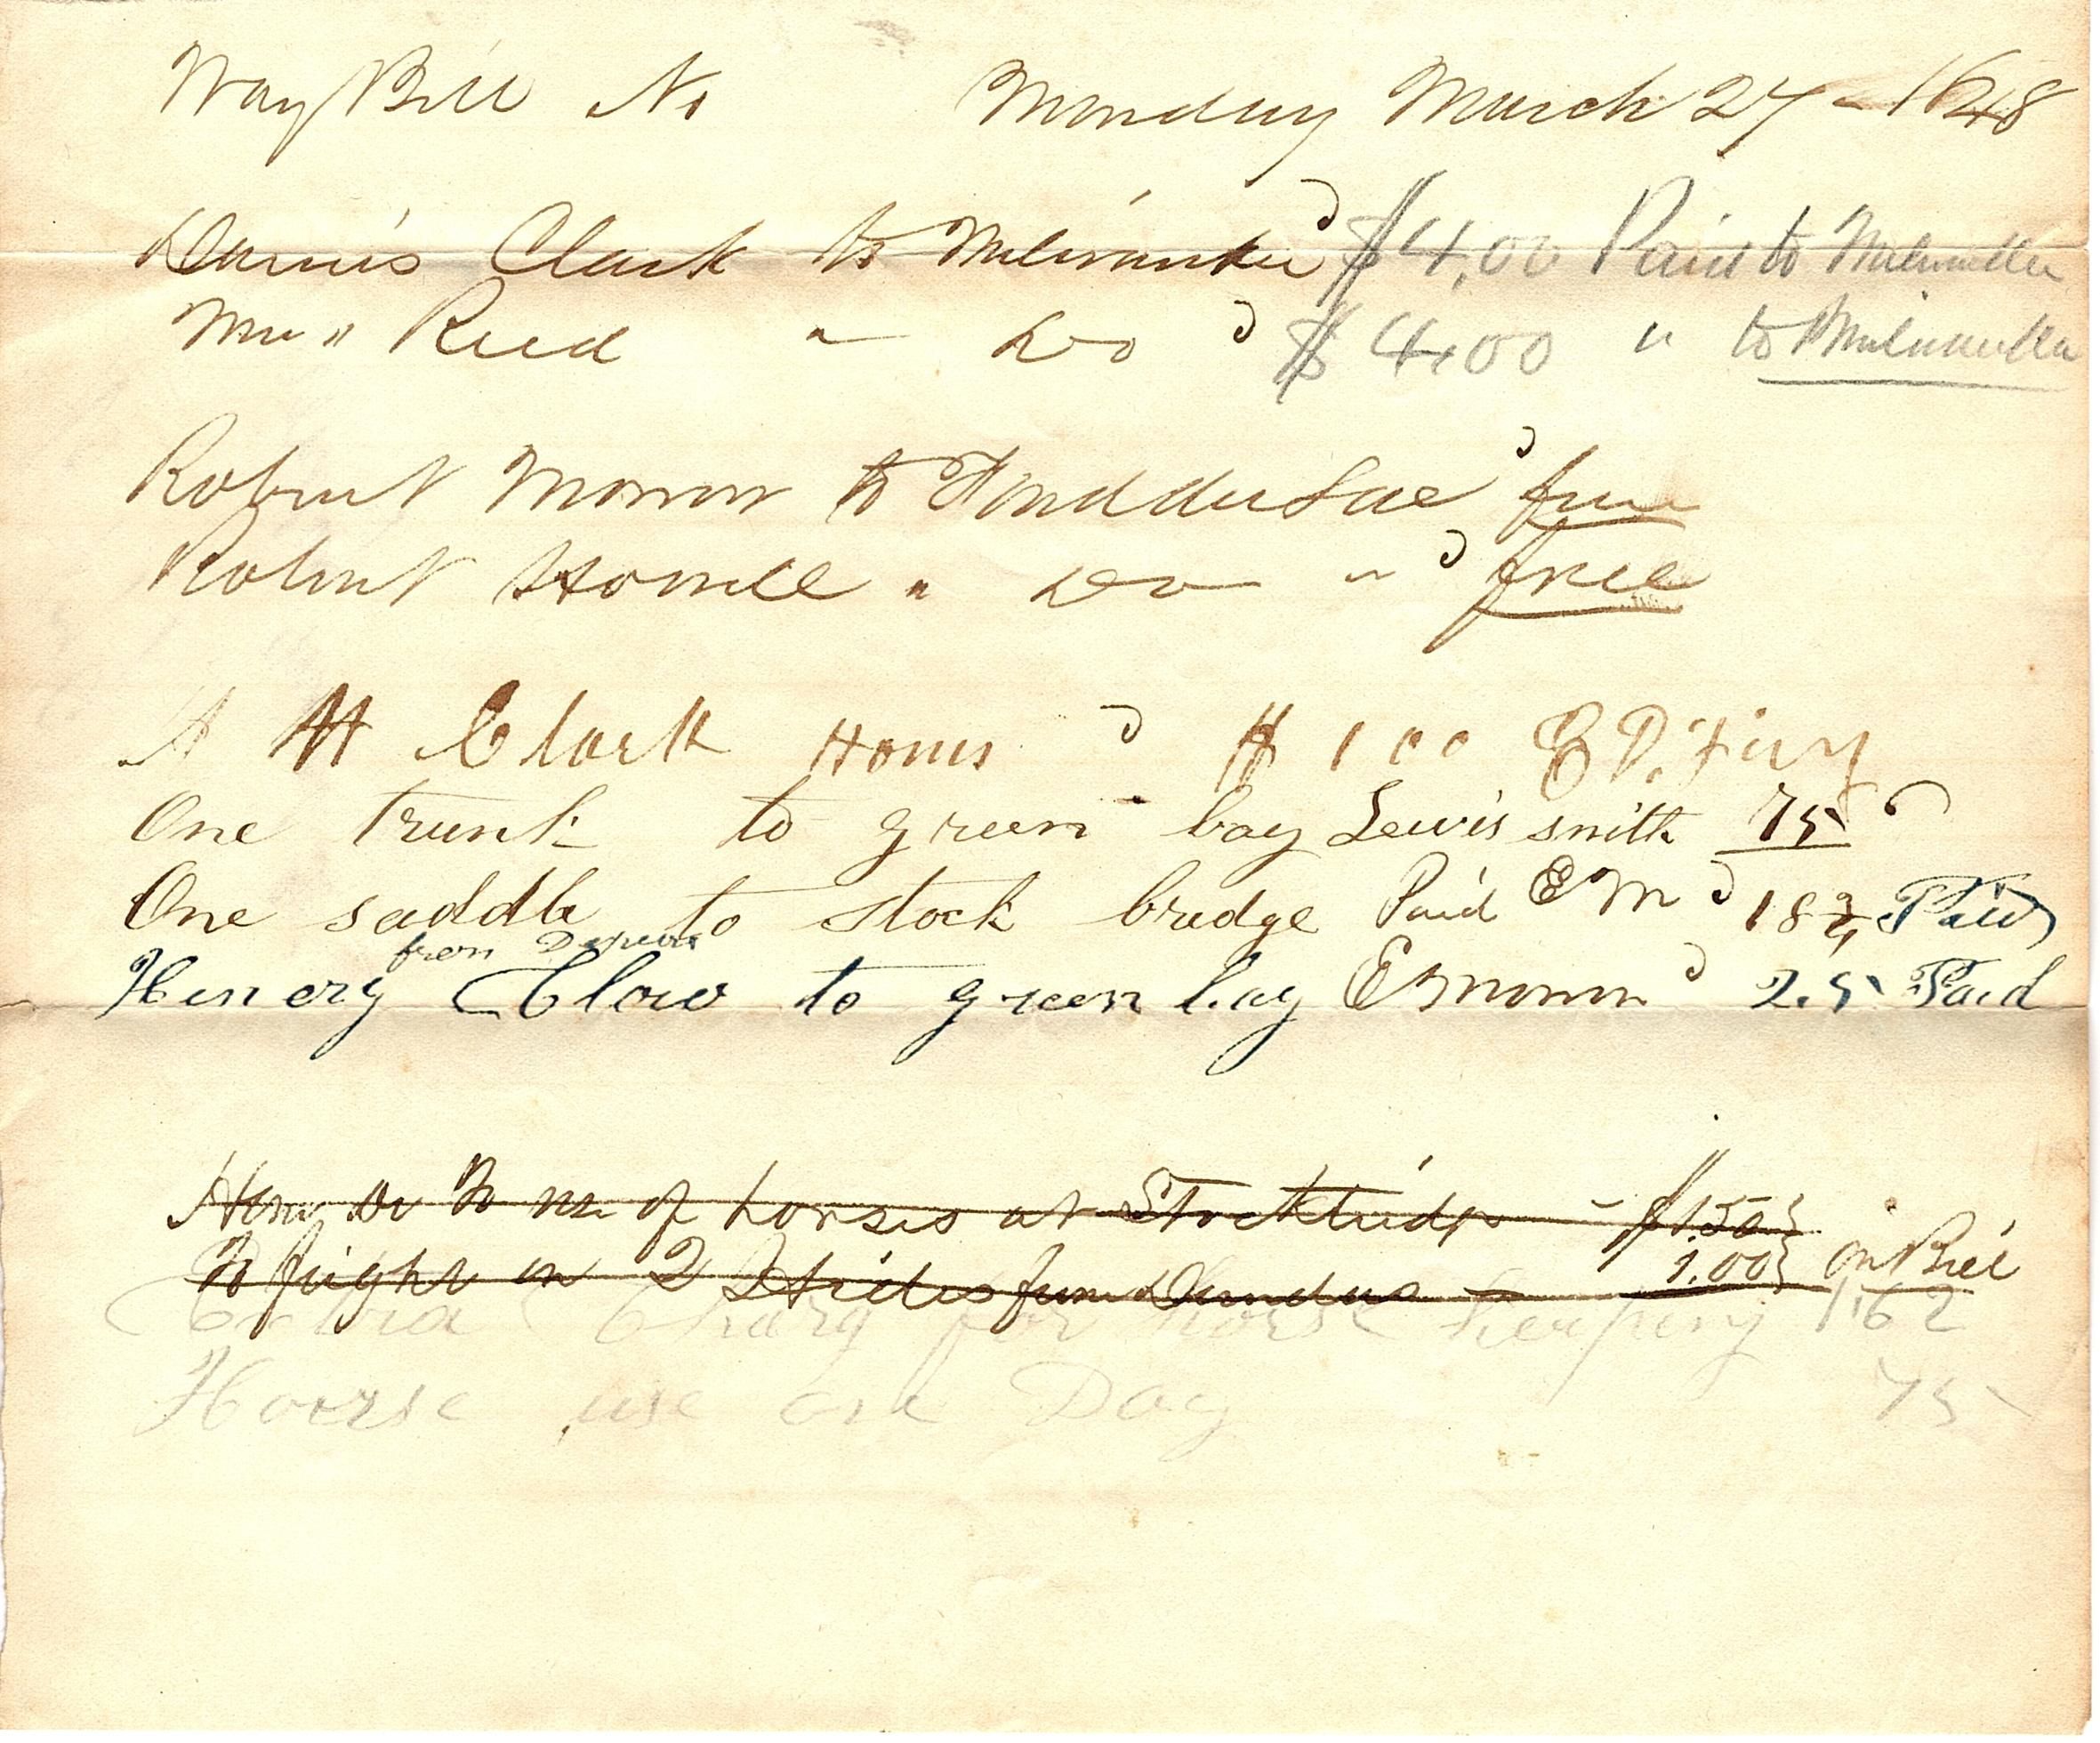 Way Bill No Monday March 27 - 1848
Dennis Clark to Milwaukee $4,00 Paid to Milwaukee
Mr " Reed " Do $4,00 " to Milwaukee
Robert Morrow to Fonddu Lac free
Robert Howell " Do " free
A H Clark $100
One trunk to green bay Lewis smith 75
One saddle to stock bridge Paid E M 18¾ Paid
from Depere
Henery Clow to green bay E Morrow 25 Paid
to use of horses at Stockbridge - $1.50
To freight on 2 from 1.00 on Bill
Extra Charg for horse keeping 1.62
Hoerse use one Day 75